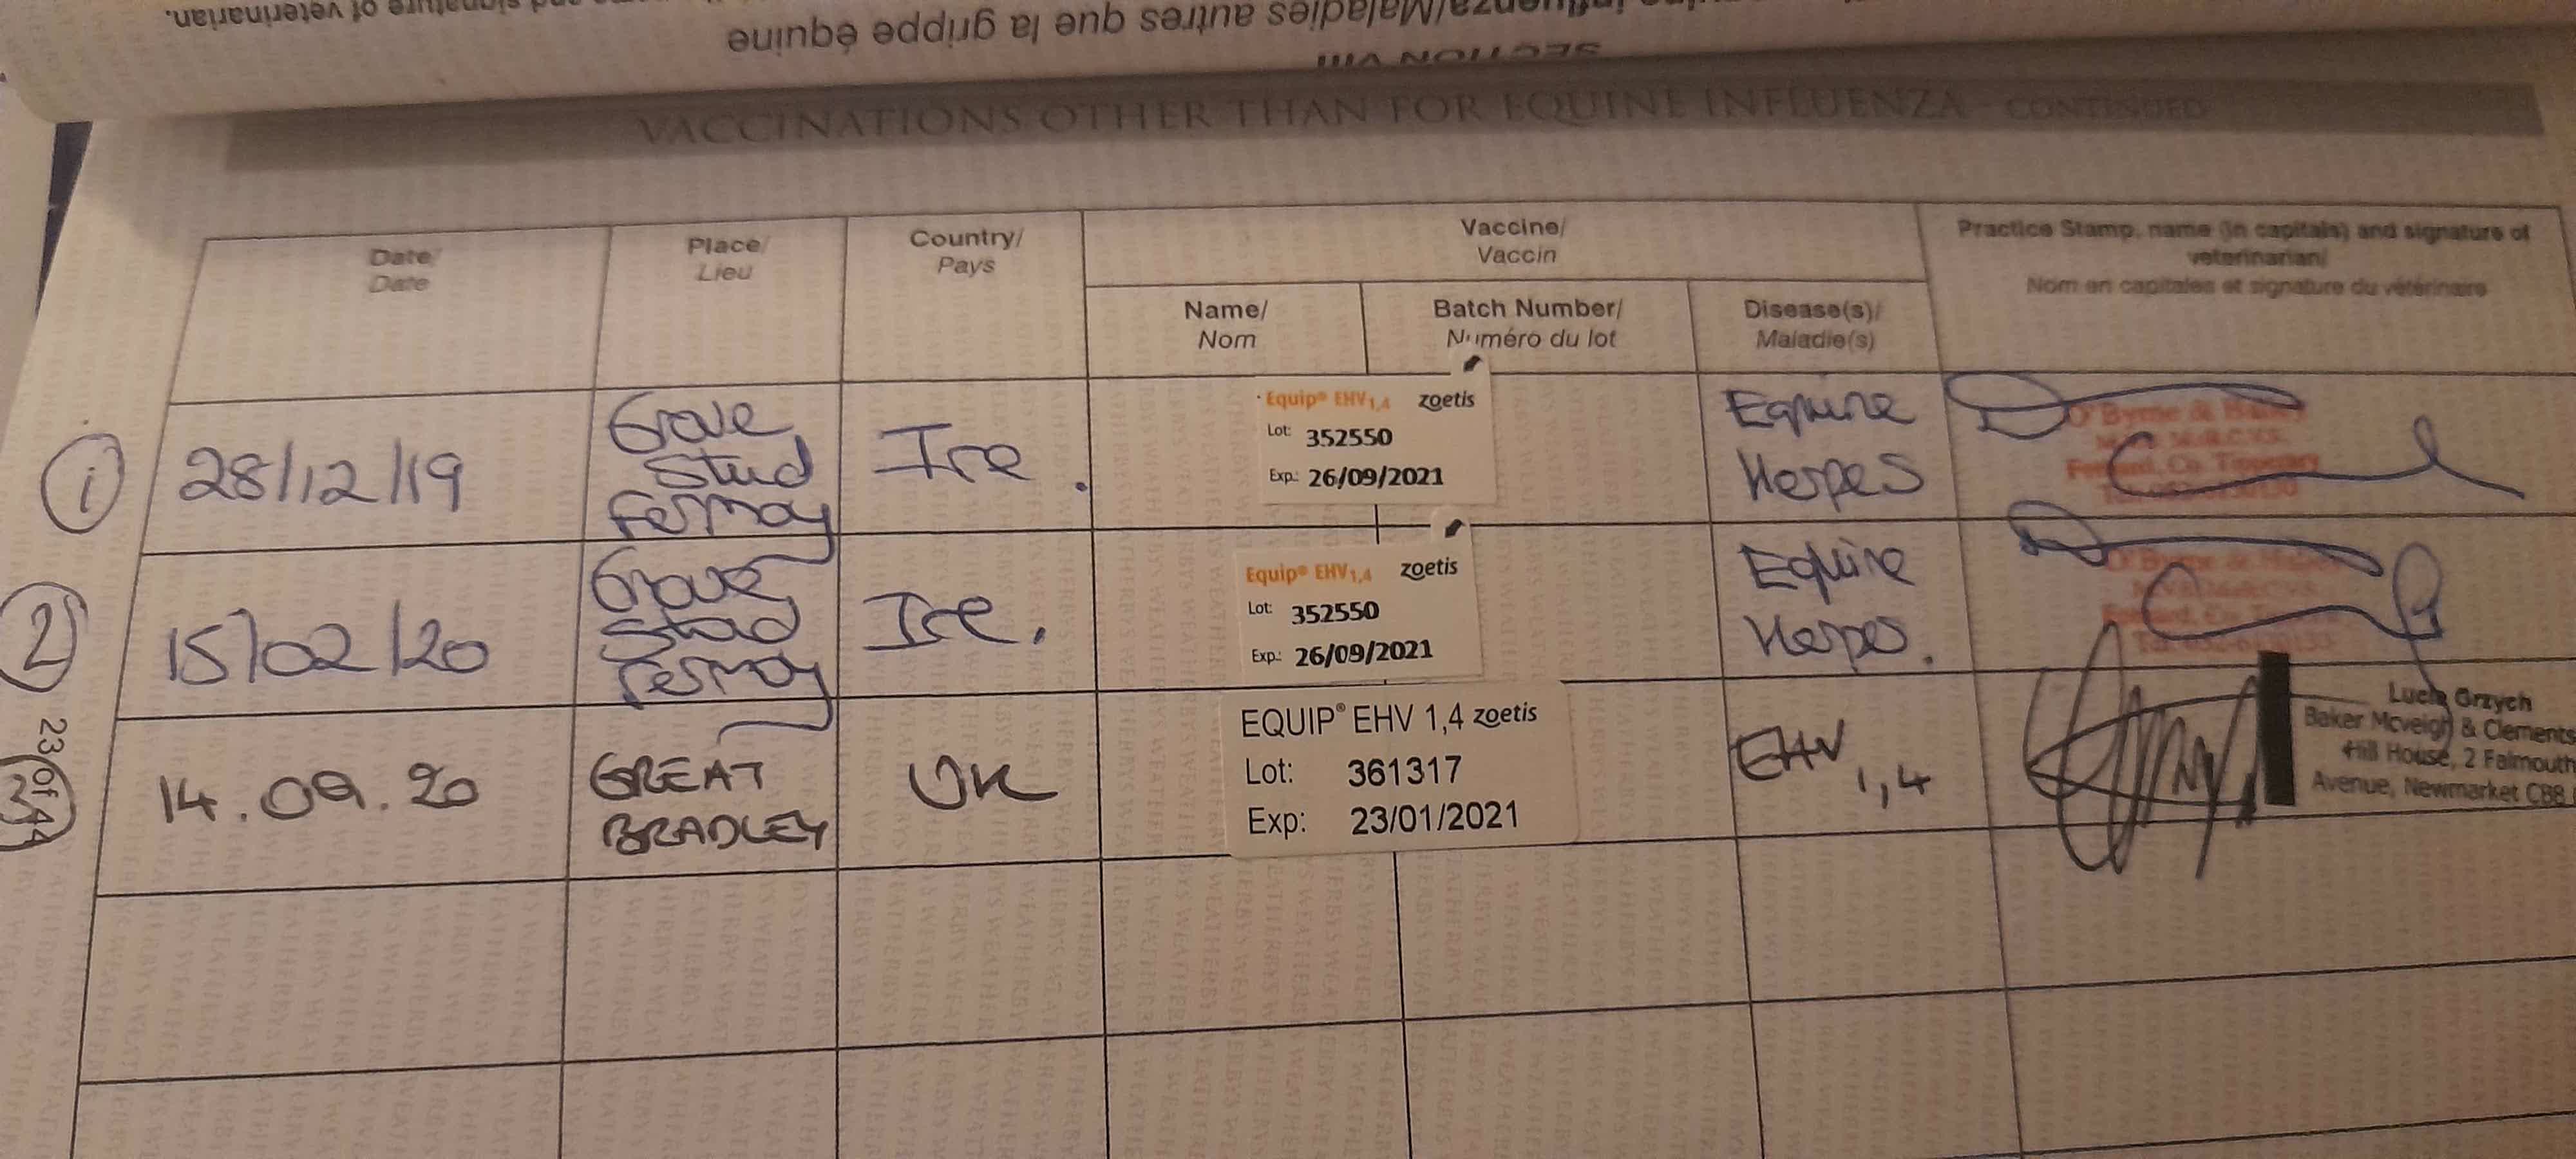 name and signature of veterinarian.
influenza/Maladies autres que la grippe équine
SECTION VIII
VACCINATIONS OTHER THAN FOR EQUINE INFLUENZA - CONTINUED
Date/
Date
Place/
Lieu
Country/
Pays
Vaccine/
Vaccin
Name/
Nom
Batch Number/
Numéro du lot
Disease(s)/
Maladie(s)
Practice Stamp, name (in capitals) and signature of
veterinarian/
Nom en capitales et signature du vétérinaire
1
28/12/19
Grove
Stud
Fermoy
Ire.
Equip® EHV1,4 zoetis
Lot: 352550
Exp.: 26/09/2021
Equine
Herpes
O'Byrne &
Co. Tipperary
2
15/02/20
Grove
Stud
Fermoy
Ire.
Equip® EHV1,4 zoetis
Lot: 352550
Exp.: 26/09/2021
Equine
Herpes.
3
14.09.20
GREAT
BRADLEY
UK
EQUIP® EHV 1,4 zoetis
Lot: 361317
Exp: 23/01/2021
EHV 1,4
Grzych
Baker Mcveigh & Clements
Hill House, 2 Falmouth
Avenue, Newmarket CB8
23 of 44